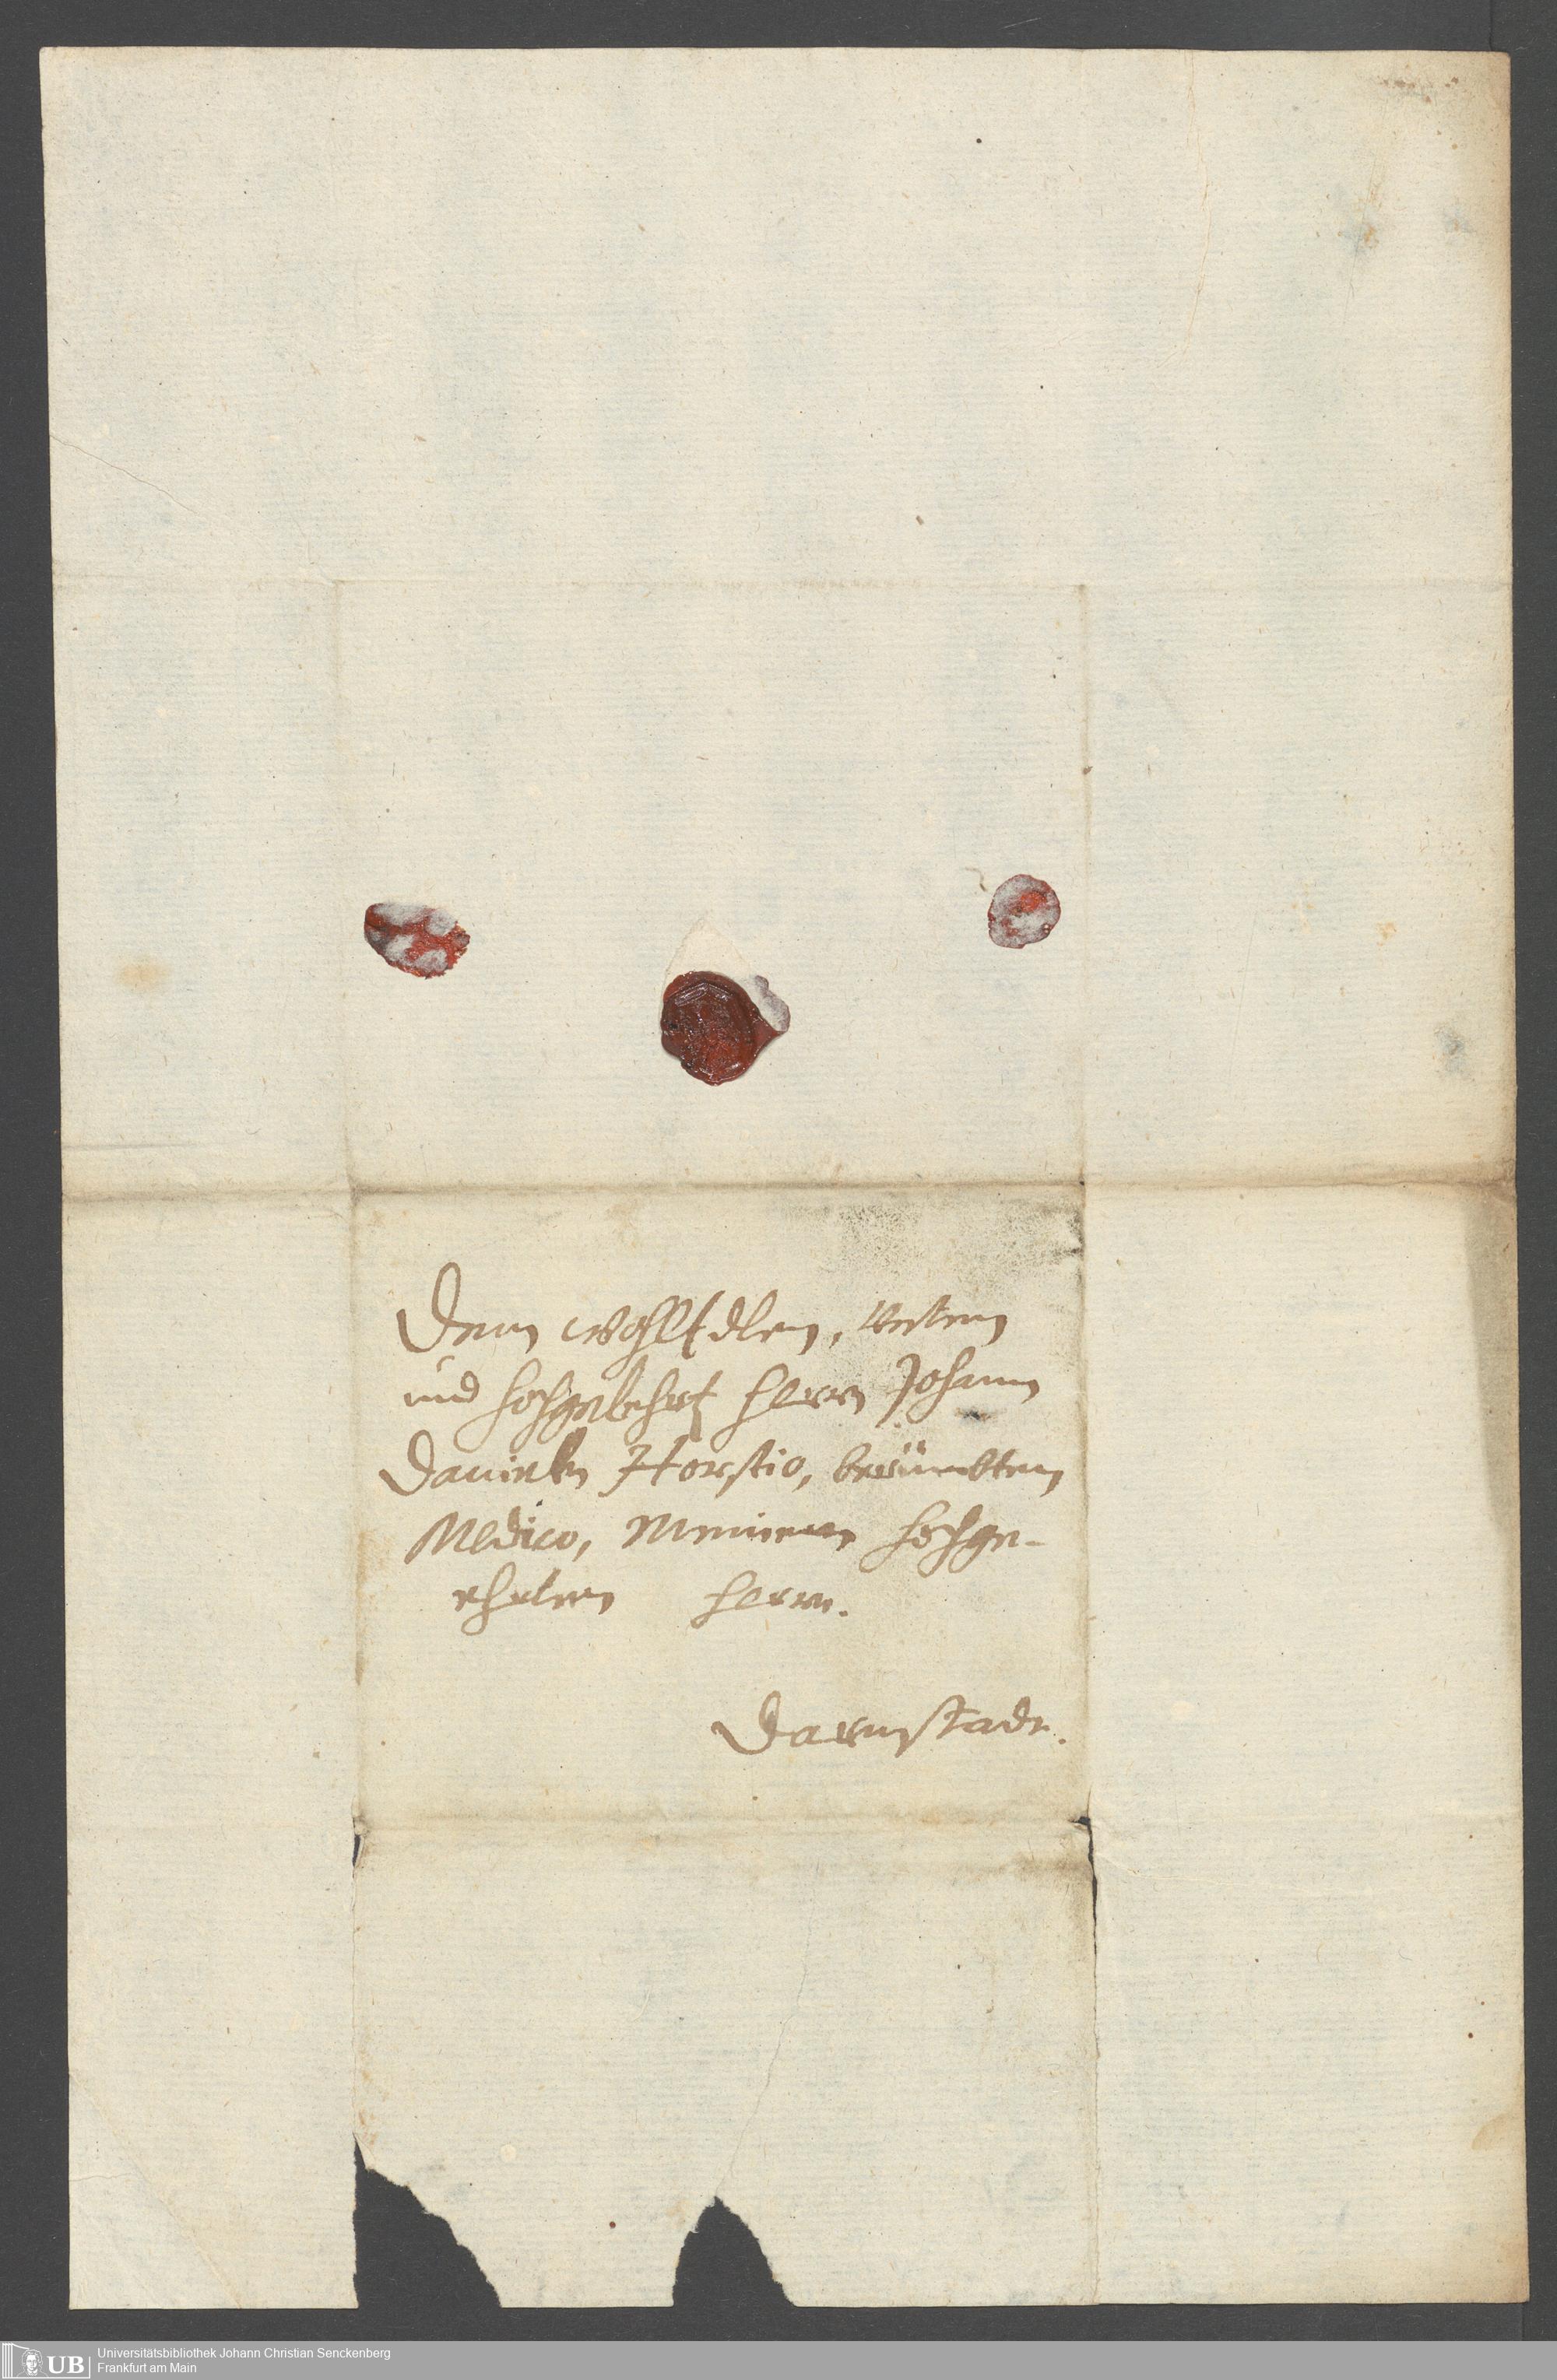 Dem WohlEdlen, Vesten
und hochgelehrt Herrn Johann
Danieln Horstio, berümbten
Medico, Meinem hochge-
ehrten Herrn.
Darmstadt.
UB
Universitätsbibliothek Johann Christian Senckenberg
Frankfurt am Main